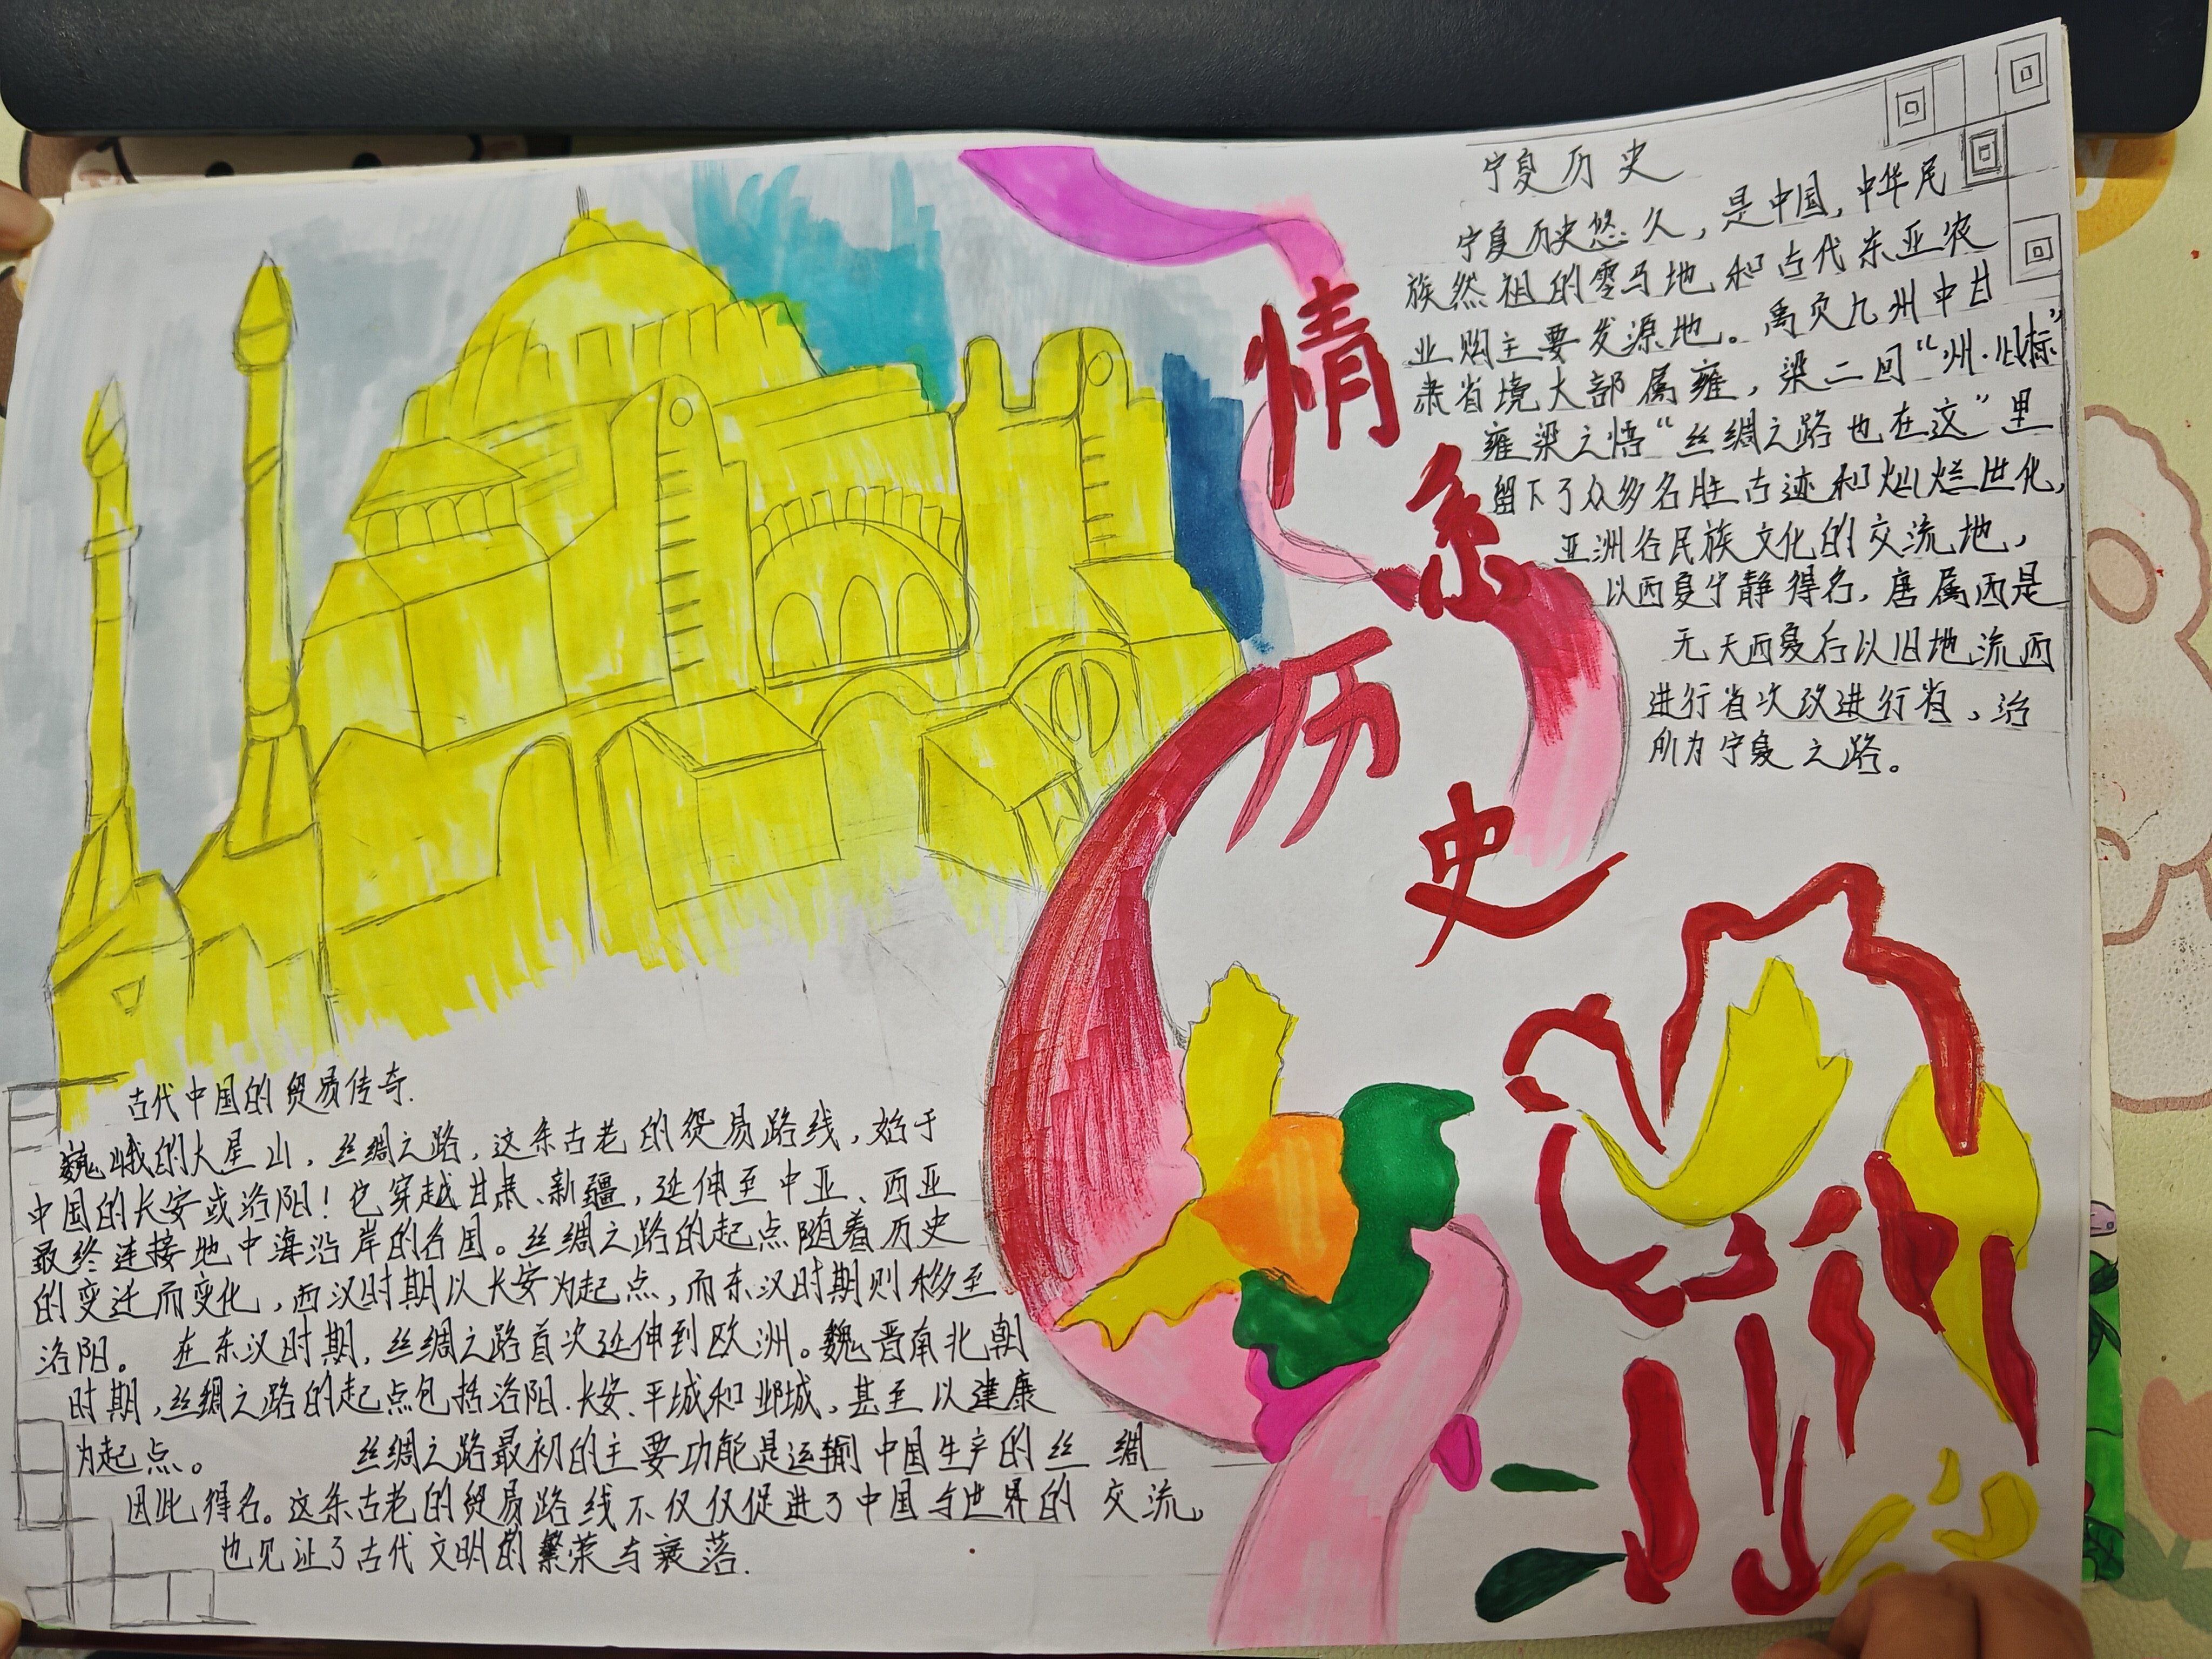 情系历史
宁夏历史
宁夏历史悠久，是中国，中华民
族然祖的零马地和古代东亚农
业购主要发源地。禹贡九州中甘
肃省境大部属雍，梁二回“州·以标”
雍梁之悟“丝绸之路也在这”里
留下了众多名胜古迹和灿烂世化，
亚洲各民族文化的交流地，
以西夏宁静得名，唐属西是
无天西夏后以旧地流西
进行省次改进行省，治
所为宁夏之路。
古代中国的贸易传奇.
巍峨的大星山，丝绸之路，这条古老的贸易路线，始于
中国的长安或洛阳！也穿越甘肃、新疆，延伸至中亚、西亚
最终连接地中海沿岸的各国。丝绸之路的起点随着历史
的变迁而变化，西汉时期以长安为起点，而东汉时期则移至
洛阳。在东汉时期，丝绸之路首次延伸到欧洲。魏晋南北朝
时期，丝绸之路的起点包括洛阳.长安、平城和邺城，甚至以建康
为起点。 丝绸之路最初的主要功能是运输中国生产的丝绸
因此得名。这条古老的贸易路线不仅仅促进了中国与世界的交流，
也见证了古代文明的繁荣与衰落.